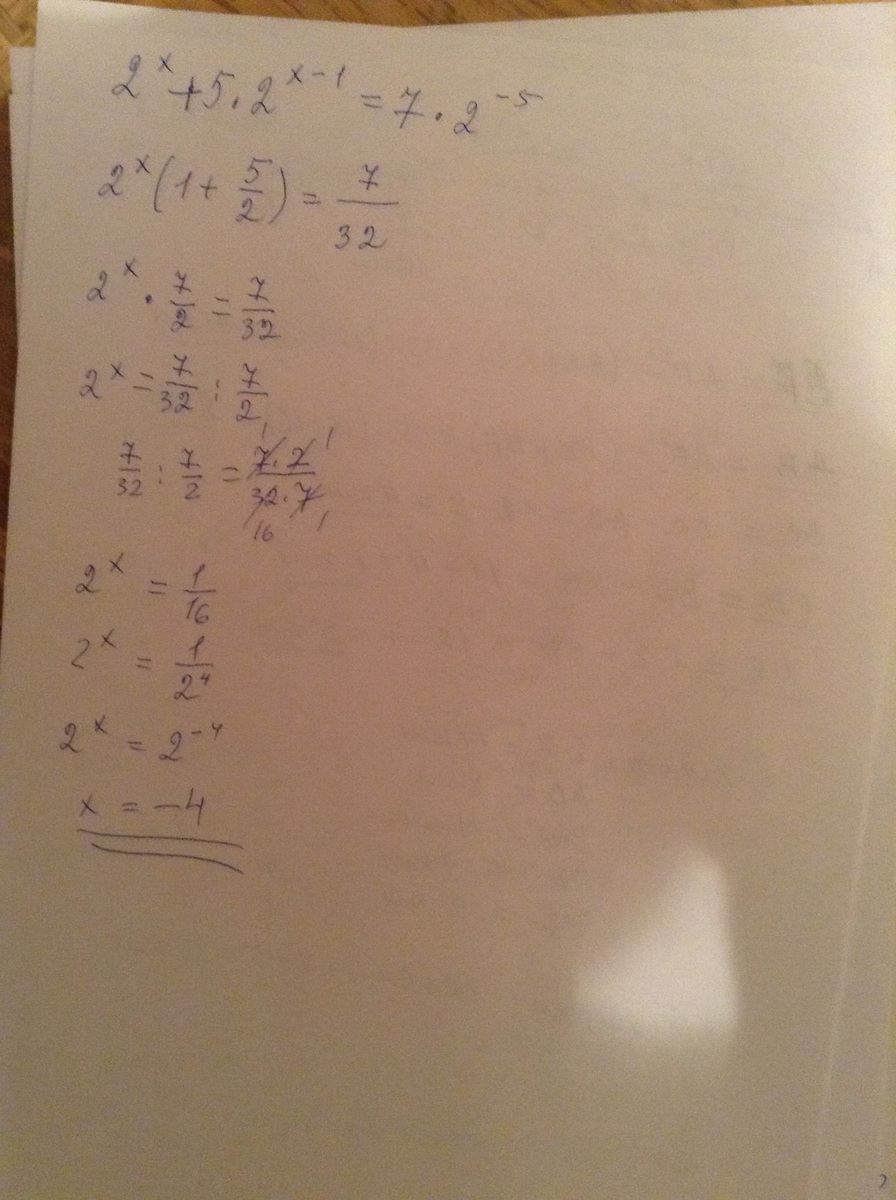 2^x + 5 · 2^(x-1) = 7 · 2^(-5)
2^x (1 + 5/2) = 7/32
2^x · 7/2 = 7/32
2^x = 7/32 : 7/2
7/32 : 7/2 = 7·2/32·7 1 1 16 1
2^x = 1/16
2^x = 1/2^4
2^x = 2^(-4)
x = -4